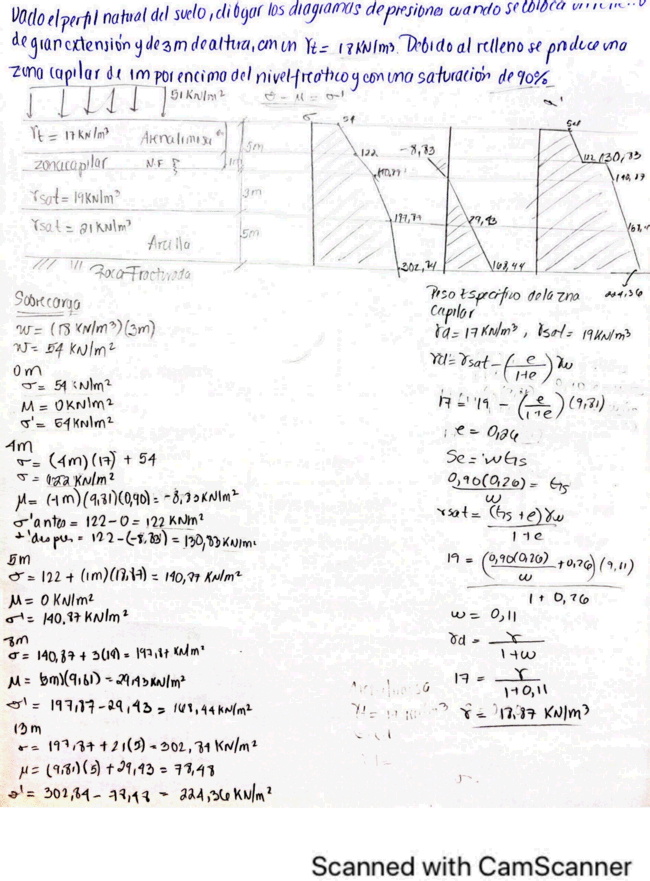 Dado el perfil natural del suelo, dibujar los diagramas de presiones cuando se coloca
de gran extensión y de 3m de altura, con un γt = 18 KN/m³. Debido al relleno se produce una
zona capilar de 1m por encima del nivel freático y con una saturación de 90%.
51 KN/m²
σ - μ = σ'
γt = 17 KN/m³ Arena limosa
5m
zona capilar N.F
1m
γsat = 19 KN/m³
3m
γsat = 21 KN/m³
5m
Arcilla
Roca Fracturada
σ
54
122
140,87
197,87
302,84
-8,83
29,43
168,44
σ'
54
122
130,83
140,87
168,4
224,36
Sobrecarga
w = (18 KN/m³)(3m)
w = 54 KN/m²
0m
σ = 54 KN/m²
μ = 0 KN/m²
σ' = 54 KN/m²
4m
σ = (4m)(17) + 54
σ = 122 KN/m²
μ = (-1m)(9,81)(0,90) = -8,83 KN/m²
σ' antes = 122 - 0 = 122 KN/m²
σ' despues = 122 - (-8,83) = 130,83 KN/m²
5m
σ = 122 + (1m)(18,87) = 140,87 KN/m²
μ = 0 KN/m²
σ' = 140,87 KN/m²
8m
σ = 140,87 + 3(19) = 197,87 KN/m²
μ = (3m)(9,81) = 29,43 KN/m²
σ' = 197,87 - 29,43 = 168,44 KN/m²
13m
σ = 197,84 + 21(5) = 302,84 KN/m²
μ = (9,81)(5) + 29,43 = 78,48
σ' = 302,84 - 78,48 = 224,36 KN/m²
Peso Especifico de la zona
capilar
γd = 17 KN/m³, γsat = 19 KN/m³
γd = γsat - (e/1+e) γw
17 = 19 - (e/1+e) (9,81)
e = 0,26
Se = wGs
0,90(0,26)/w = Gs
γsat = (Gs + e)γw/1+e
19 = (0,90(0,26)/w + 0,26)(9,81)/1 + 0,26
w = 0,11
γd = γ/1+w
17 = γ/1+0,11
γ = 18,87 KN/m³
Scanned with CamScanner